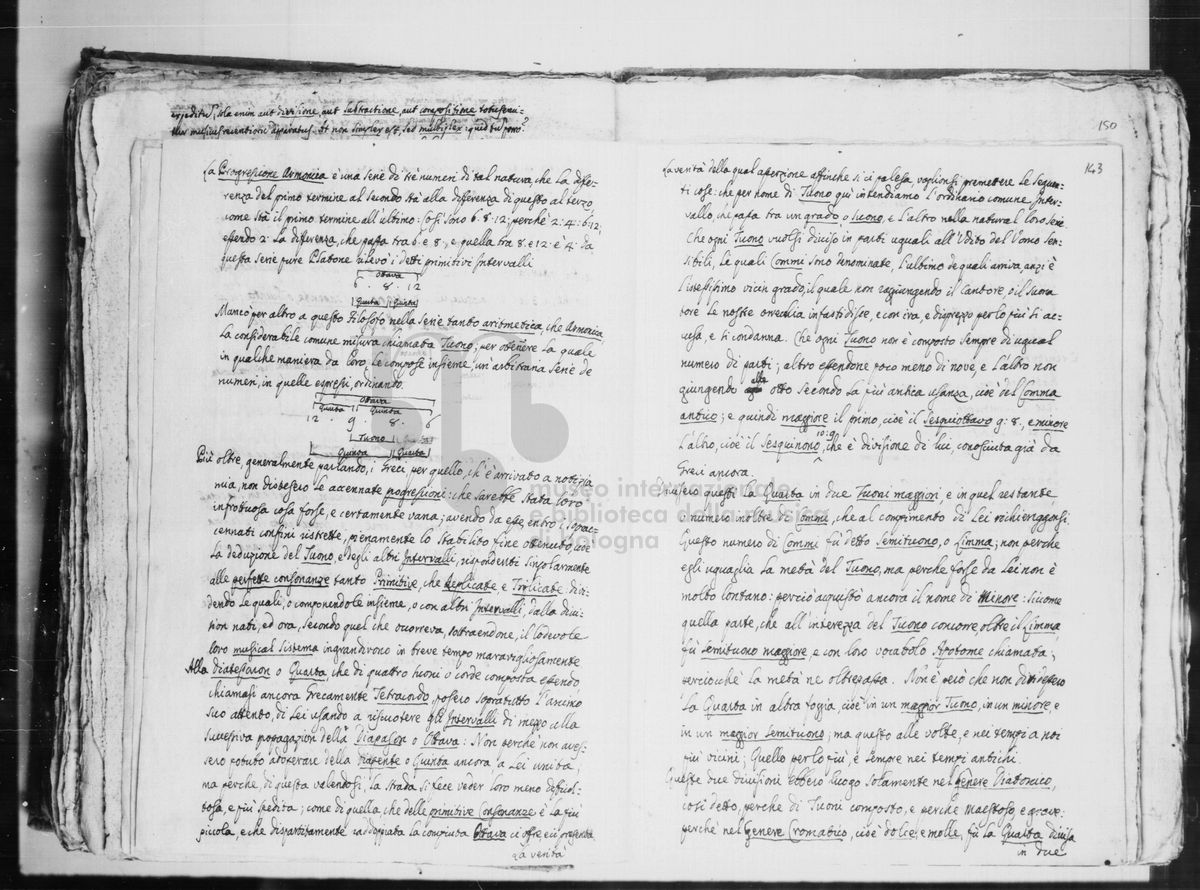 expeditus, sola enim aut divisione, aut subtractione, aut compositione totus emi-
musicus recentioris apparatus. At non simplex est, sed multiplex: quid tu porro?
La Progressione Armonica è una serie di trè numeri di tal natura, che la diffe-
renza del primo termine al secondo stà alla differenza di questo al terzo
come stà il primo termine all'ultimo: Così sono 6. 8. 12; perchè 2: 4: 6: 12,
essendo 2 la differenza, che passa tra 6. e 8., e quella tra 8. e 12. è 4. da
questa serie pure Platone rilevò i detti primitivi Intervalli
Ottava
6 . 8 . 12
Quarta Quinta
Mancò per altro a questo Filosofo nella serie tanto aritmetica, che Armonica
la considerabile comune misura chiamata Tuono; per ottenere la quale
in qualche maniera da loro, le compose insieme, un'arbitraria serie de
numeri, in quelle espressi, ordinando.
Ottava
Quarta Quinta
12 . 9 . 8 . 6
Tuono
Quinta Quarta
Più oltre, generalmente parlando, i Greci per quello, ch'è arrivato a notizia
mia, non distesero le accennate progressioni: che sarebbe stata loro
infrutuosa cosa forse, e certamente vana; avendo da esse entro i sovrac-
cennati confini ristrette, pienamente lo stabilito fine ottenuto, cioè
la deduzione del Tuono, e degli altri Intervalli, rispondenti singolarmente
alle perfette consonanze tanto Primitive, che Replicate, e Triplicate: divi-
dendo le quali, o componendole insieme, o con altri Intervalli, dalla divi-
sion nati, ed ora, secondo quel che ocorreva, sottraendone, il lodevole
loro musical sistema ingrandirono in breve tempo maravigliosamente
Alla diatessaron o Quarta, che di quattro suoni o corde composta essendo,
chiamasi ancora Grecamente Tetracordo, posero sopratutto l'animo
suo attento, di Lei usando a riscuotere gli Intervalli di mezzo alla
successiva propagazion della Diapason o Ottava: Non perchè non aves-
sero potuto adoperare della Diapente o Quinta ancora a Lei unita;
ma perchè, di questa valendosi, la strada si fece veder loro meno dificul-
tosa, e più spedita; come di quella, che delle primitive Consonanze è la più
picola, e che dispartitamente raddoppiata la compiuta Ottava ci offre e ci presenta.
La verità
150
143
La verità della qual asserzione affinchè si ci palesa voglionsi premettere le seguen-
ti cose: che per nome di Tuono quì intendiamo l'ordinario comune Inter-
vallo, che passa tra un grado o suono, e l'altro nella natural loro serie.
Che ogni Tuono vuolsi diviso in parti uguali all'Udito del Uomo sen-
sibili, le quali Commi sono denominate, l'ultimo de quali arriva, anzi è
l'istessissimo vicin grado, il quale non raggiungendo il Cantore, o il Suona
tore le nostre orecchia infastidisce, e con ira, e disprezzo per lo più si ac-
cusa, e si condanna. Che ogni Tuono non è composto sempre di ugual
numero di parti; altro essendone poco meno di nove, e l'altro non
giungendo alle otto secondo la più antica usanza, cioè del Comma
antico; e quindi maggiore il primo, cioè il Sesquiottavo 9: 8., e minore
l'altro, cioè il Sesquinono 10: 9, che è divisione de lui, conosciuta già da
Greci ancora.
Divisero questi la Quarta in due Tuoni maggiori, e in quel restante
numero inoltre di Commi, che al compimento di Lei richieggonsi.
Questo numero di Commi fù detto Semituono, o Limma; non perchè
egli uguaglia la metà del Tuono, ma perchè forse da Lei non è
molto lontano: perciò acquistò ancora il nome di Minore: siccome
quella parte, che all'interezza del Tuono concorre, oltre il Limma,
fù Semituono maggiore, e con loro vocabolo Apotome chiamata;
perciocchè la metà ne oltrepassa. Non è però che non dividessero
la Quarta in altra foggia, cioè in un maggior Tuono, in un minore, e
in un maggior Semituono; ma questo alle volte, e nei tempi a noi
più vicini; Quello per lo più, e sempre nei tempi antichi.
Queste due divisioni ebbero luogo solamente nel genere Diatonico,
così detto, perchè di Tuoni composto, e perchè Maestoso, e grave:
perchè nel genere Cromatico, cioè dolce, e molle, fù la Quarta divisa
in due
museo internazionale
e biblioteca della musica
di bologna